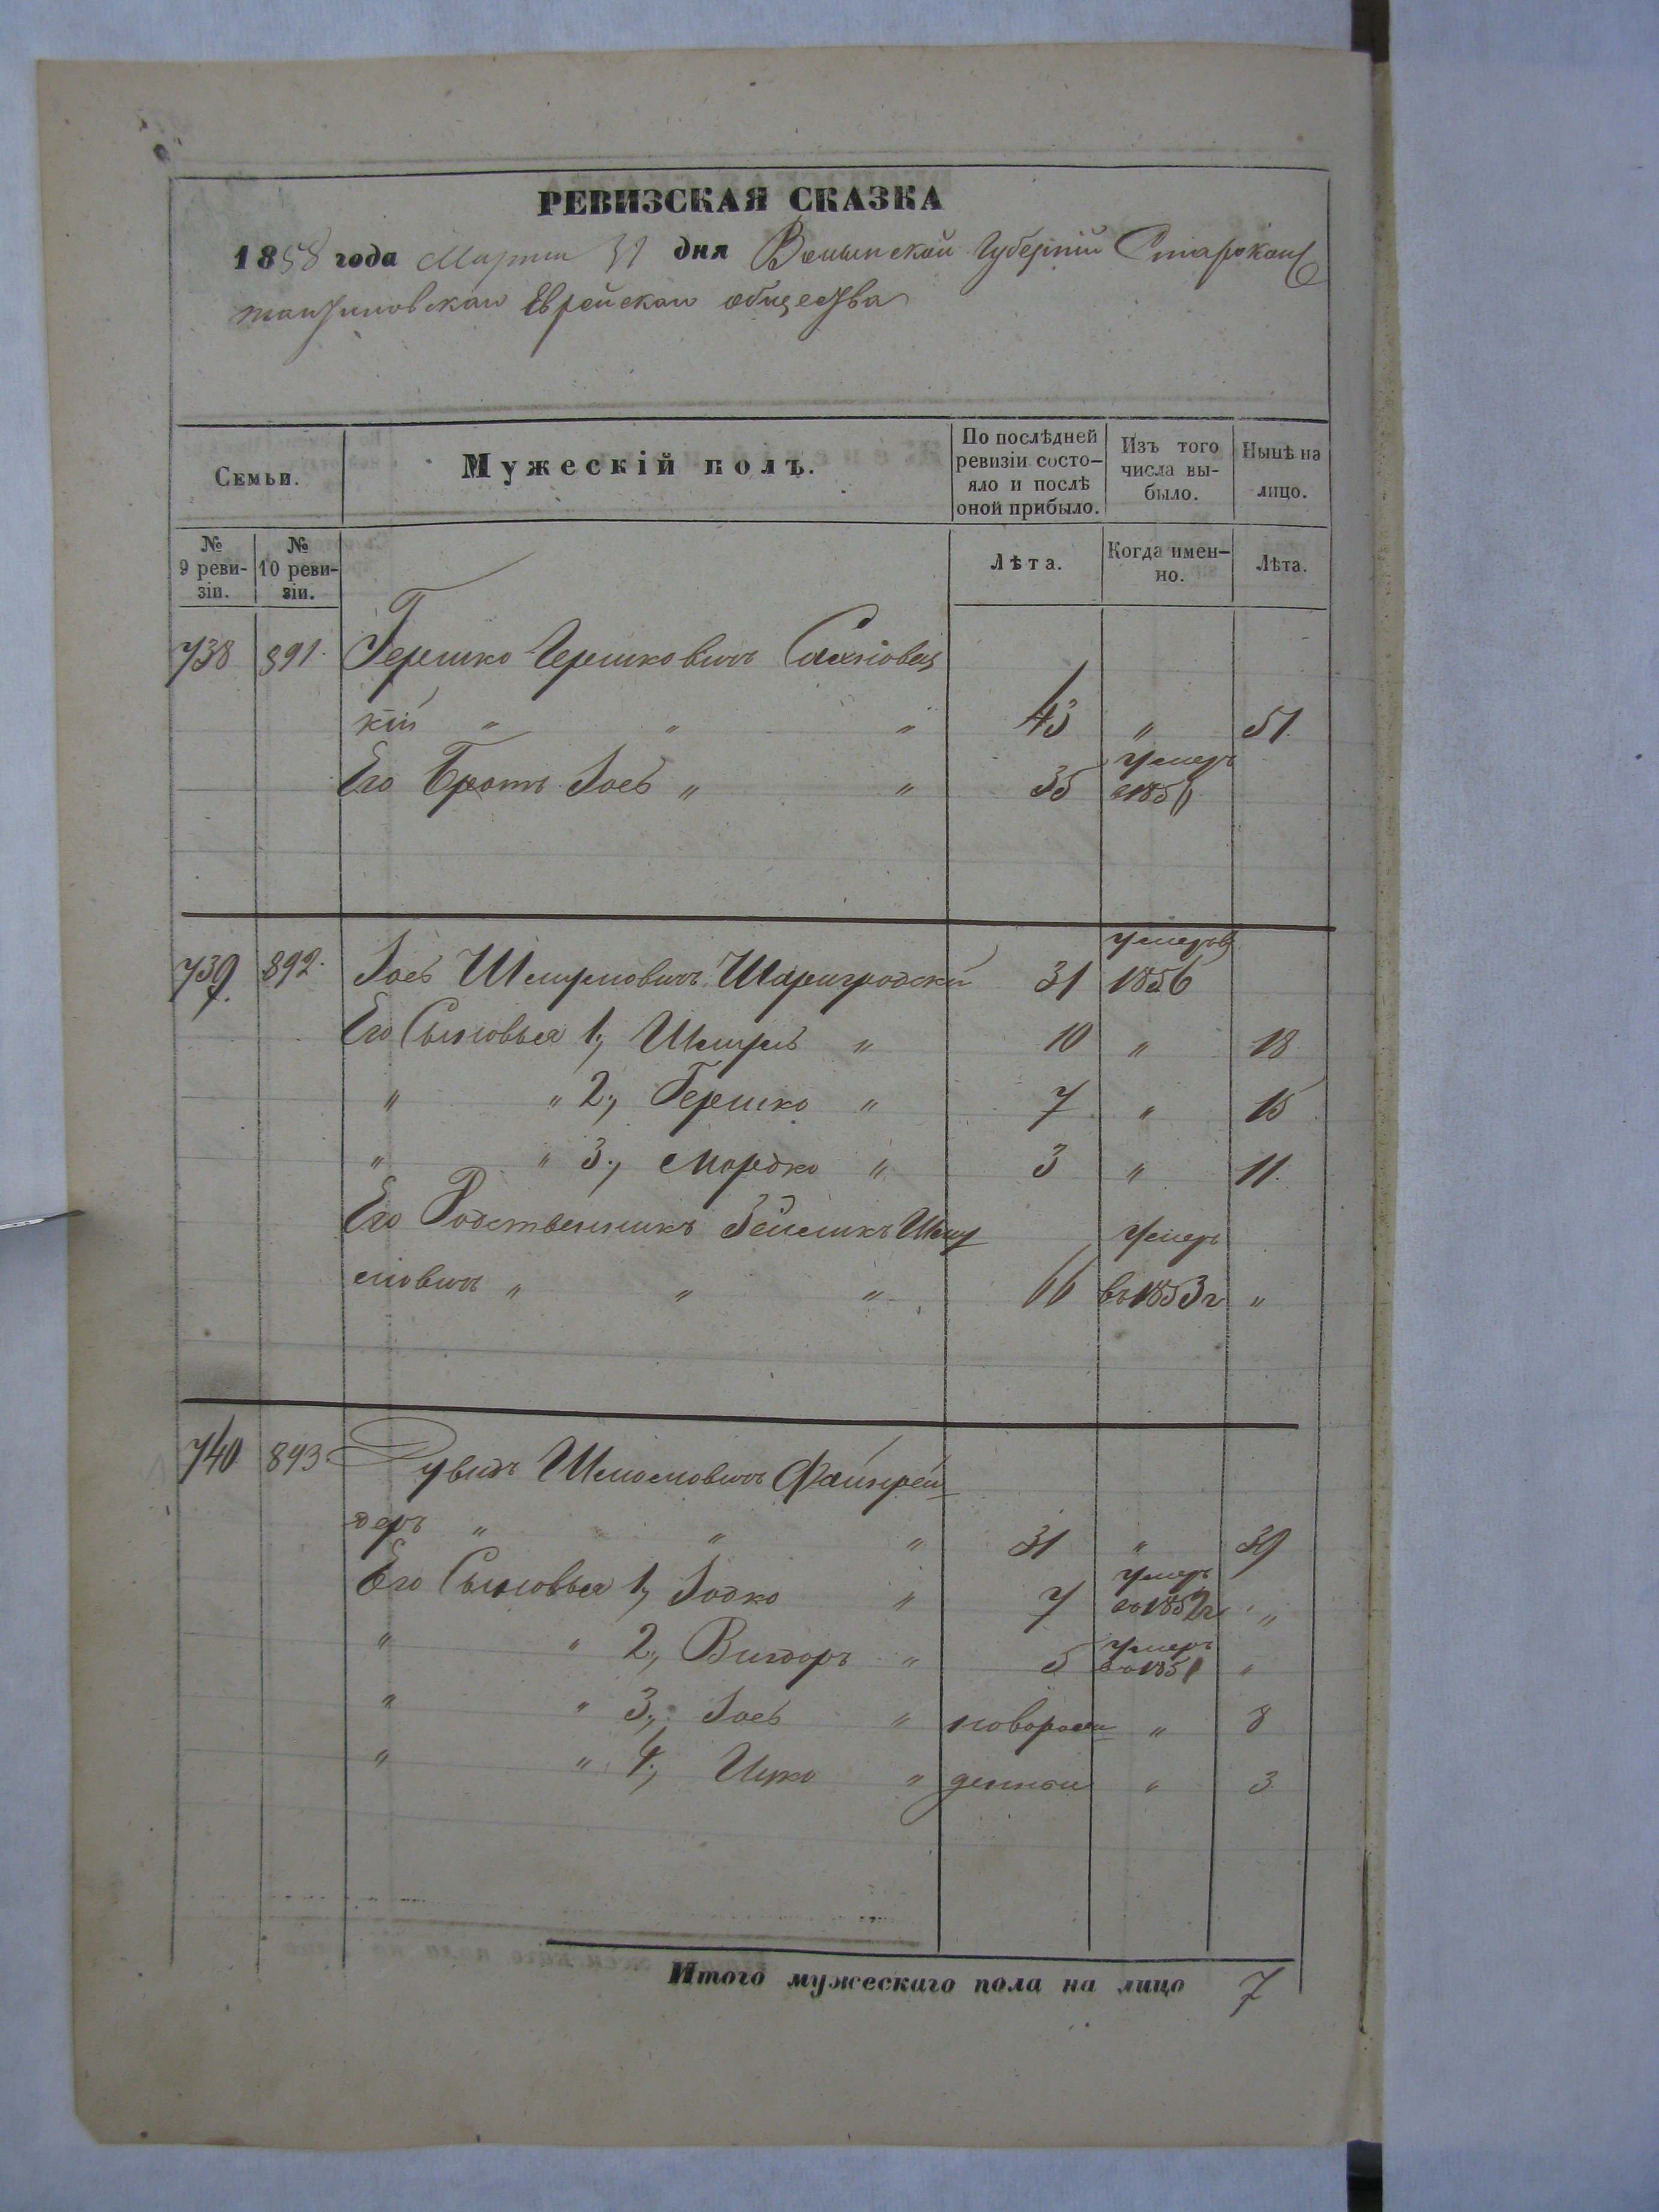 РЕВИЗСКАЯ СКАЗКА
1858 года Марта 31 дня Волынской Губерніи Старокон
тантиновскаго Еврейскаго общества
Семьи.
Мужескій полъ.
По послѣдней ревизіи состо- яло и послѣ оной прибыло.
Изъ того числа вы- было.
Нынѣ на лицо.
№ 9 реви- зіи.
№ 10 реви- зіи.
Лѣта.
Когда имен- но.
Лѣта.
738 891. Гершко Гершковичъ Сахновец
кій " " " 43 " 51.
Его Братъ Іось " " 35 умеръ 1856
739. 892. Іось Шмулювичъ Шаргородскій 31 умеръ въ 1856
Его Сыновья 1, Шмуль " 10 " 18
" " 2, Гершко " 7 " 15
" " 3, Мордко " 3 " 11.
Его Родственникъ Зейликъ Шму
лювичъ " " " 66 умеръ въ 1853 г "
740 893. Рувинъ Шмулювичъ Файнрей
деръ " " " 31 " 39
Его Сыновья 1, Іодко " 7 умеръ въ 1852 г "
" " 2, Вигдоръ " 5 умеръ въ 1851 "
" " 3, Іось " новорож " 8
" " 4, Ицко " денные " 3
Итого мужескаго пола на лицо 7